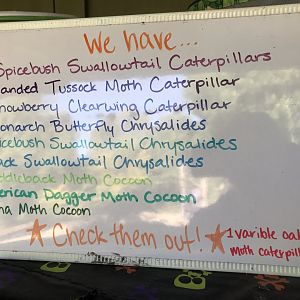 We have...
Spicebush Swallowtail Caterpillars
anded Tussock Moth Caterpillar
nowberry Clearwing Caterpillar
onarch Butterfly Chrysalides
icebush Swallowtail Chrysalides
ack Swallowtail Chrysalides
ddleback Moth Cocoon
erican Dagger Moth Cocoon
na Moth Cocoon
Check them out!
1 varible oak
moth caterpil